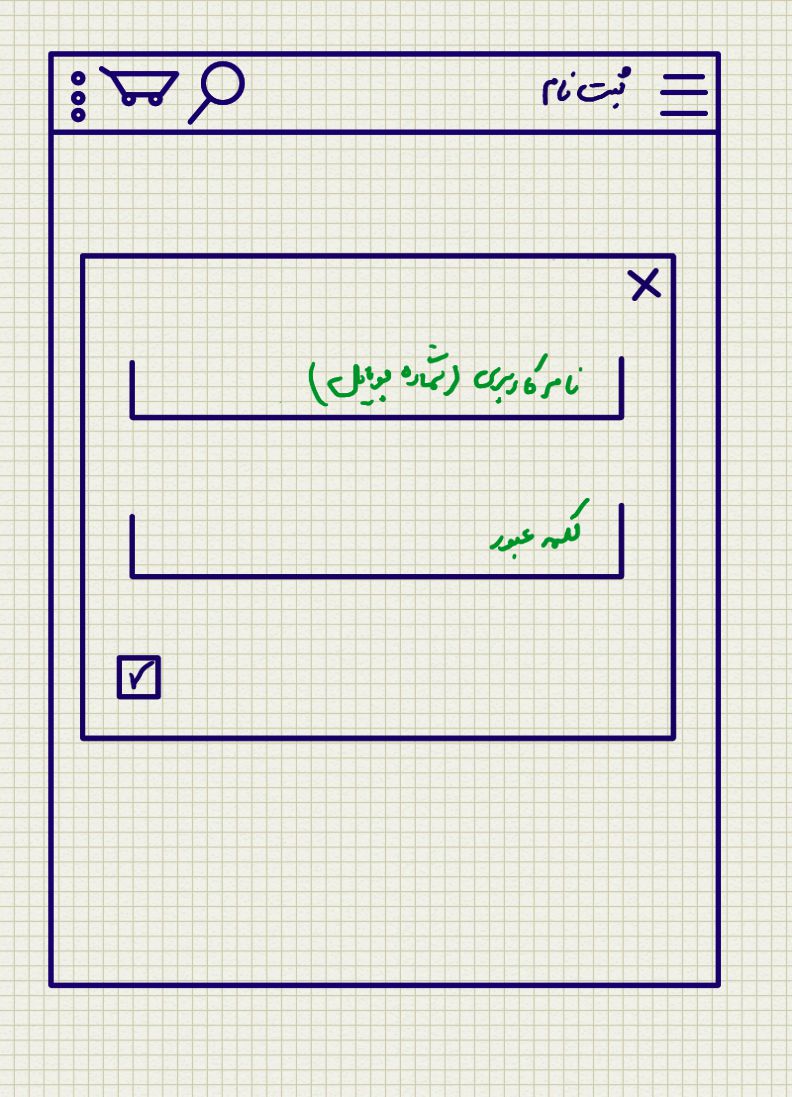 ثبت نام
نام کاربری (شماره موبایل)
کلمه عبور